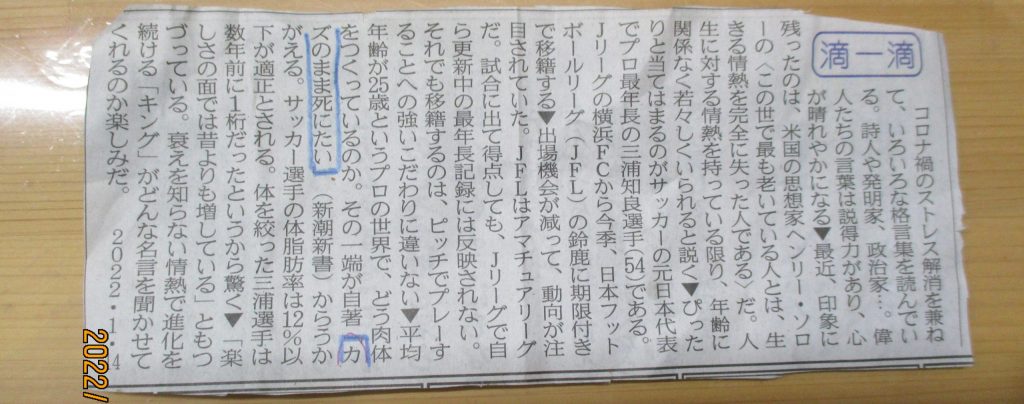 滴一滴
コロナ禍のストレス解消を兼ね
て、いろいろな格言集を読んでい
る。詩人や発明家、政治家…。偉
人たちの言葉は説得力があり、心
が晴れやかになる▼最近、印象に
残ったのは、米国の思想家ヘンリー・ソロ
ーの〈この世で最も老いている人とは、生
きる情熱を完全に失った人である〉だ。人
生に対する情熱を持っている限り、年齢に
関係なく若々しくいられると説く▼ぴった
りと当てはまるのがサッカーの元日本代表
でプロ最年長の三浦知良選手（54）である。
Jリーグの横浜FCから今季、日本フット
ボールリーグ（JFL）の鈴鹿に期限付き
で移籍する▼出場機会が減って、動向が注
目されていた。JFLはアマチュアリーグ
だ。試合に出て得点しても、Jリーグで自
ら更新中の最年長記録には反映されない。
それでも移籍するのは、ピッチでプレーす
ることへの強いこだわりに違いない▼平均
年齢が25歳というプロの世界で、どう肉体
をつくっているのか。その一端が自著「カ
ズのまま死にたい」（新潮新書）からうか
がえる。サッカー選手の体脂肪率は12％以
下が適正とされる。体を絞った三浦選手は
数年前に1桁だったというから驚く▼「楽
しさの面では昔よりも増している」ともつ
づっている。衰えを知らない情熱で進化を
続ける「キング」がどんな名言を聞かせて
くれるのか楽しみだ。 2022・1・4
2022/